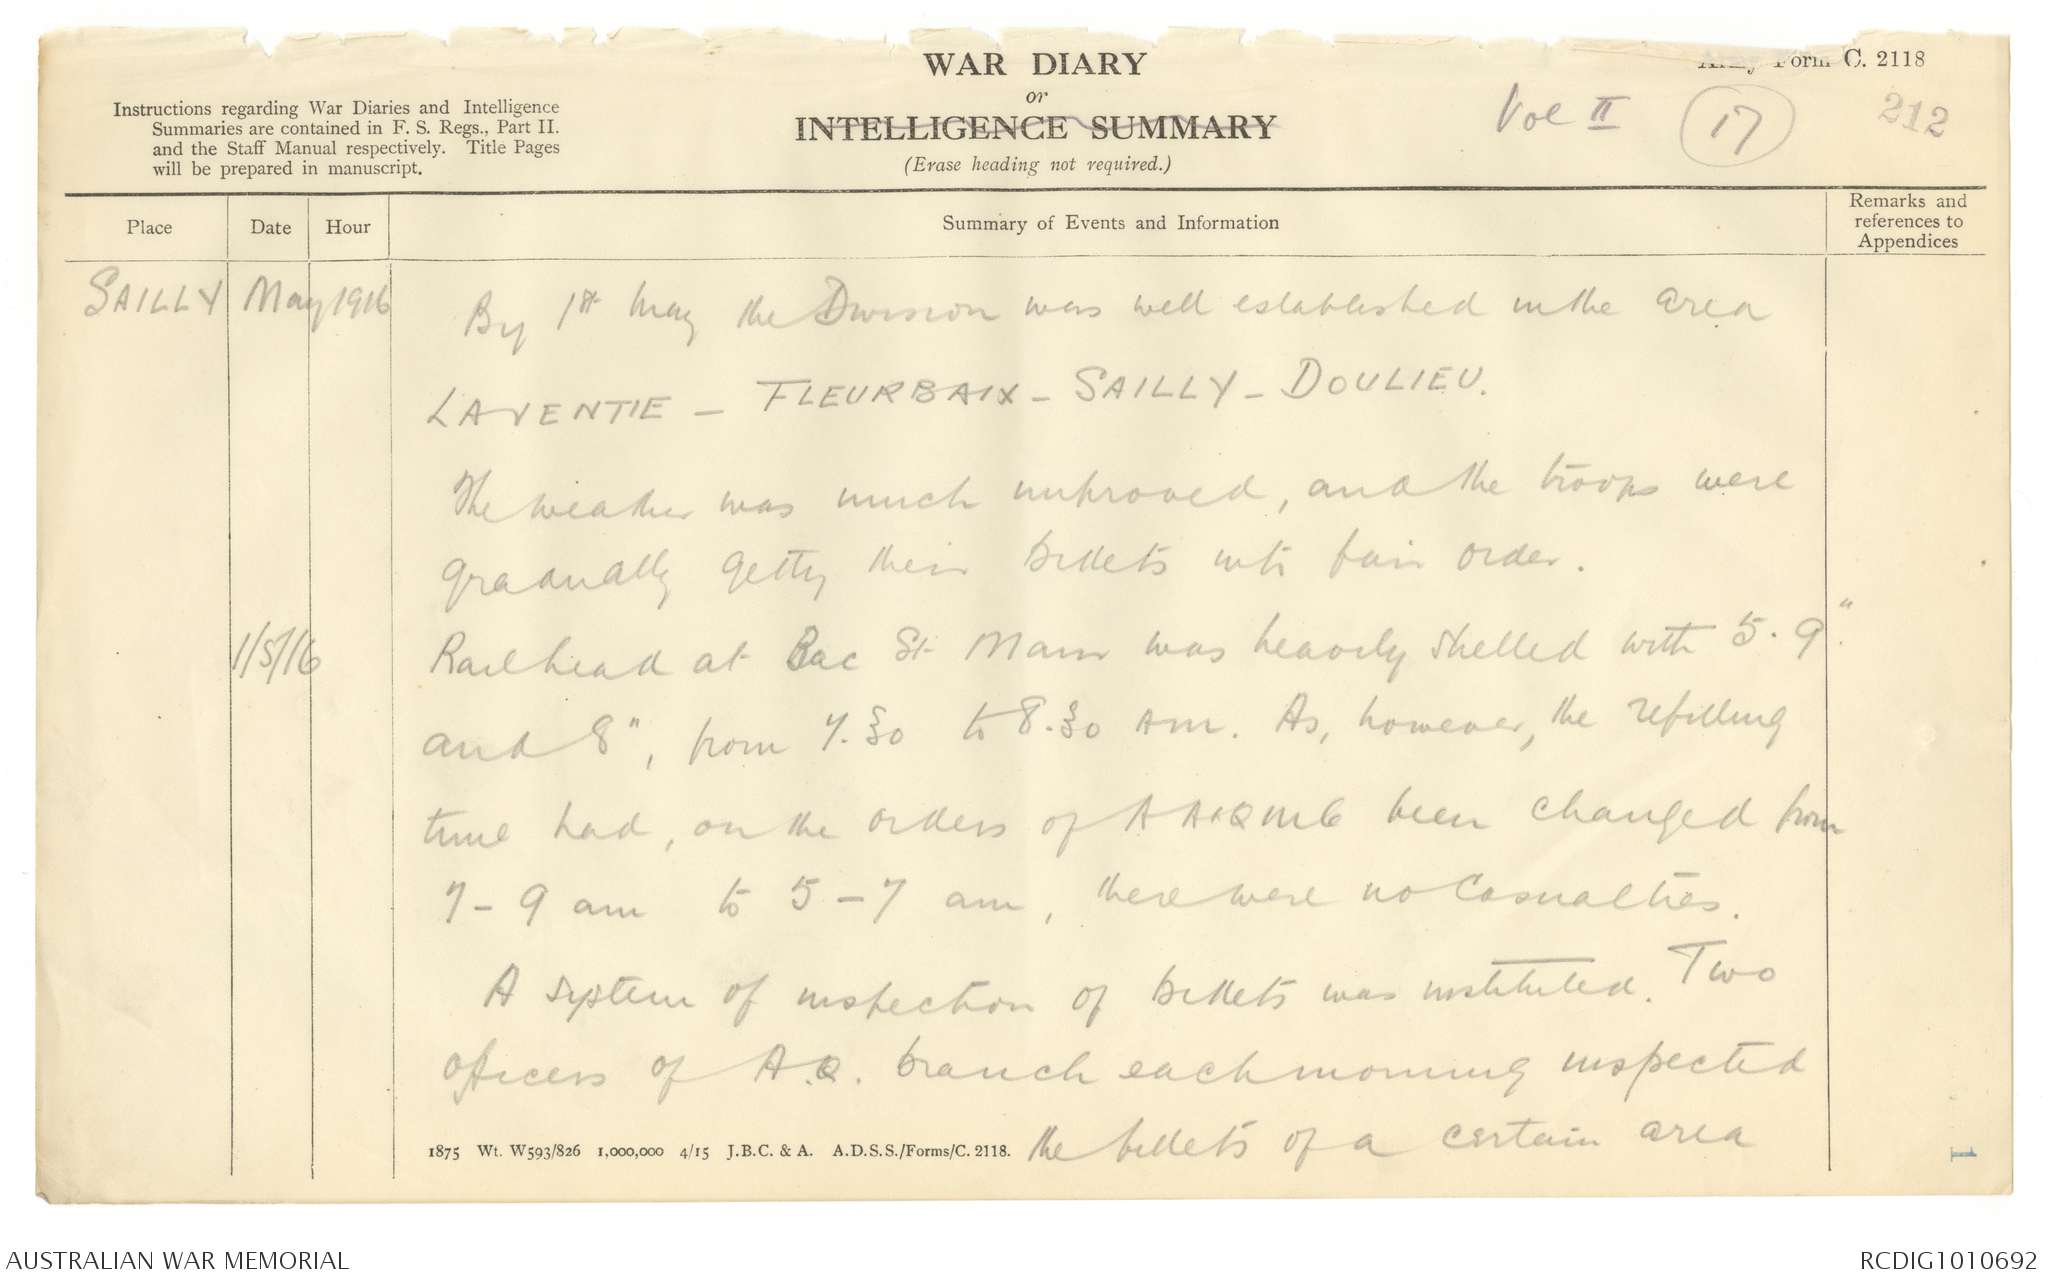 WAR DIARY
or
INTELLIGENCE SUMMARY
(Erase heading not required.)
Army Form C. 2118
Vol II
17
212
Instructions regarding War Diaries and Intelligence
Summaries are contained in F. S. Regs., Part II.
and the Staff Manual respectively. Title Pages
will be prepared in manuscript.
Place
Date
Hour
Summary of Events and Information
Remarks and
references to
Appendices
SAILLY May 1916 By 1st May the Division was well established in the area
LAVENTIE - FLEURBAIX - SAILLY - DOULIEU.
The weather was much improved, and the troops were
gradually getting their billets into fair order.
1/5/16 Railhead at Bac St Maur was heavily shelled with 5.9"
and 8", from 7.30 to 8.30 am. As, however, the refilling
time had, on the orders of AA&QMG been changed from
7-9 am to 5-7 am, there were no casualties.
A system of inspection of billets was instituted. Two
officers of A.Q. branch each morning inspected
the billets of a certain area
1875 Wt. W593/826 1,000,000 4/15 J.B.C. & A. A.D.S.S./Forms/C. 2118.
1
AUSTRALIAN WAR MEMORIAL
RCDIG1010692